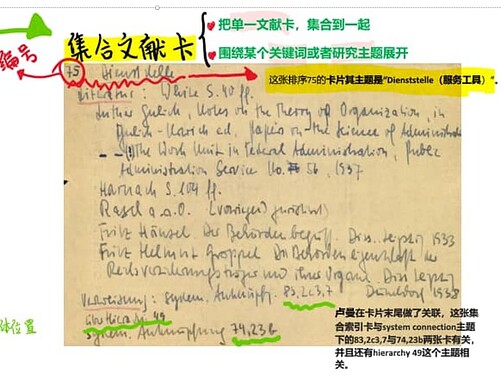 编号
集合文献卡
• 把单一文献卡，集合到一起
• 围绕某个关键词或者研究主题展开
这张排序75的卡片其主题是“Dienststelle（服务工具）”。
75 Dienststelle
Literatur: White S. 40 ff.
Luther Gulick, Notes on the Theory of Organization, in
Gulick-Urwick ed., Papers on the Science of Administration
The Work Unit in Federal Administration, Public
Administration Service No. 56, 1937
Harnack S. 104 ff.
a.a.O.
Fritz Hänsel Der Behördenbegriff. Diss. Leipzig 1933
Fritz Helmut Die Behördeneigenschaft der
und ihrer Organe. Diss Leipzig
1938
Verweisung: System. Anknüpf. 83,2c3,7
49
System. Anknüpfung 74,23b
位置
卢曼在卡片末尾做了关联，这张集
合索引卡与system connection主题
下的83,2c3,7与74,23b两张卡有关，
并且还有hierarchy 49这个主题相
关。